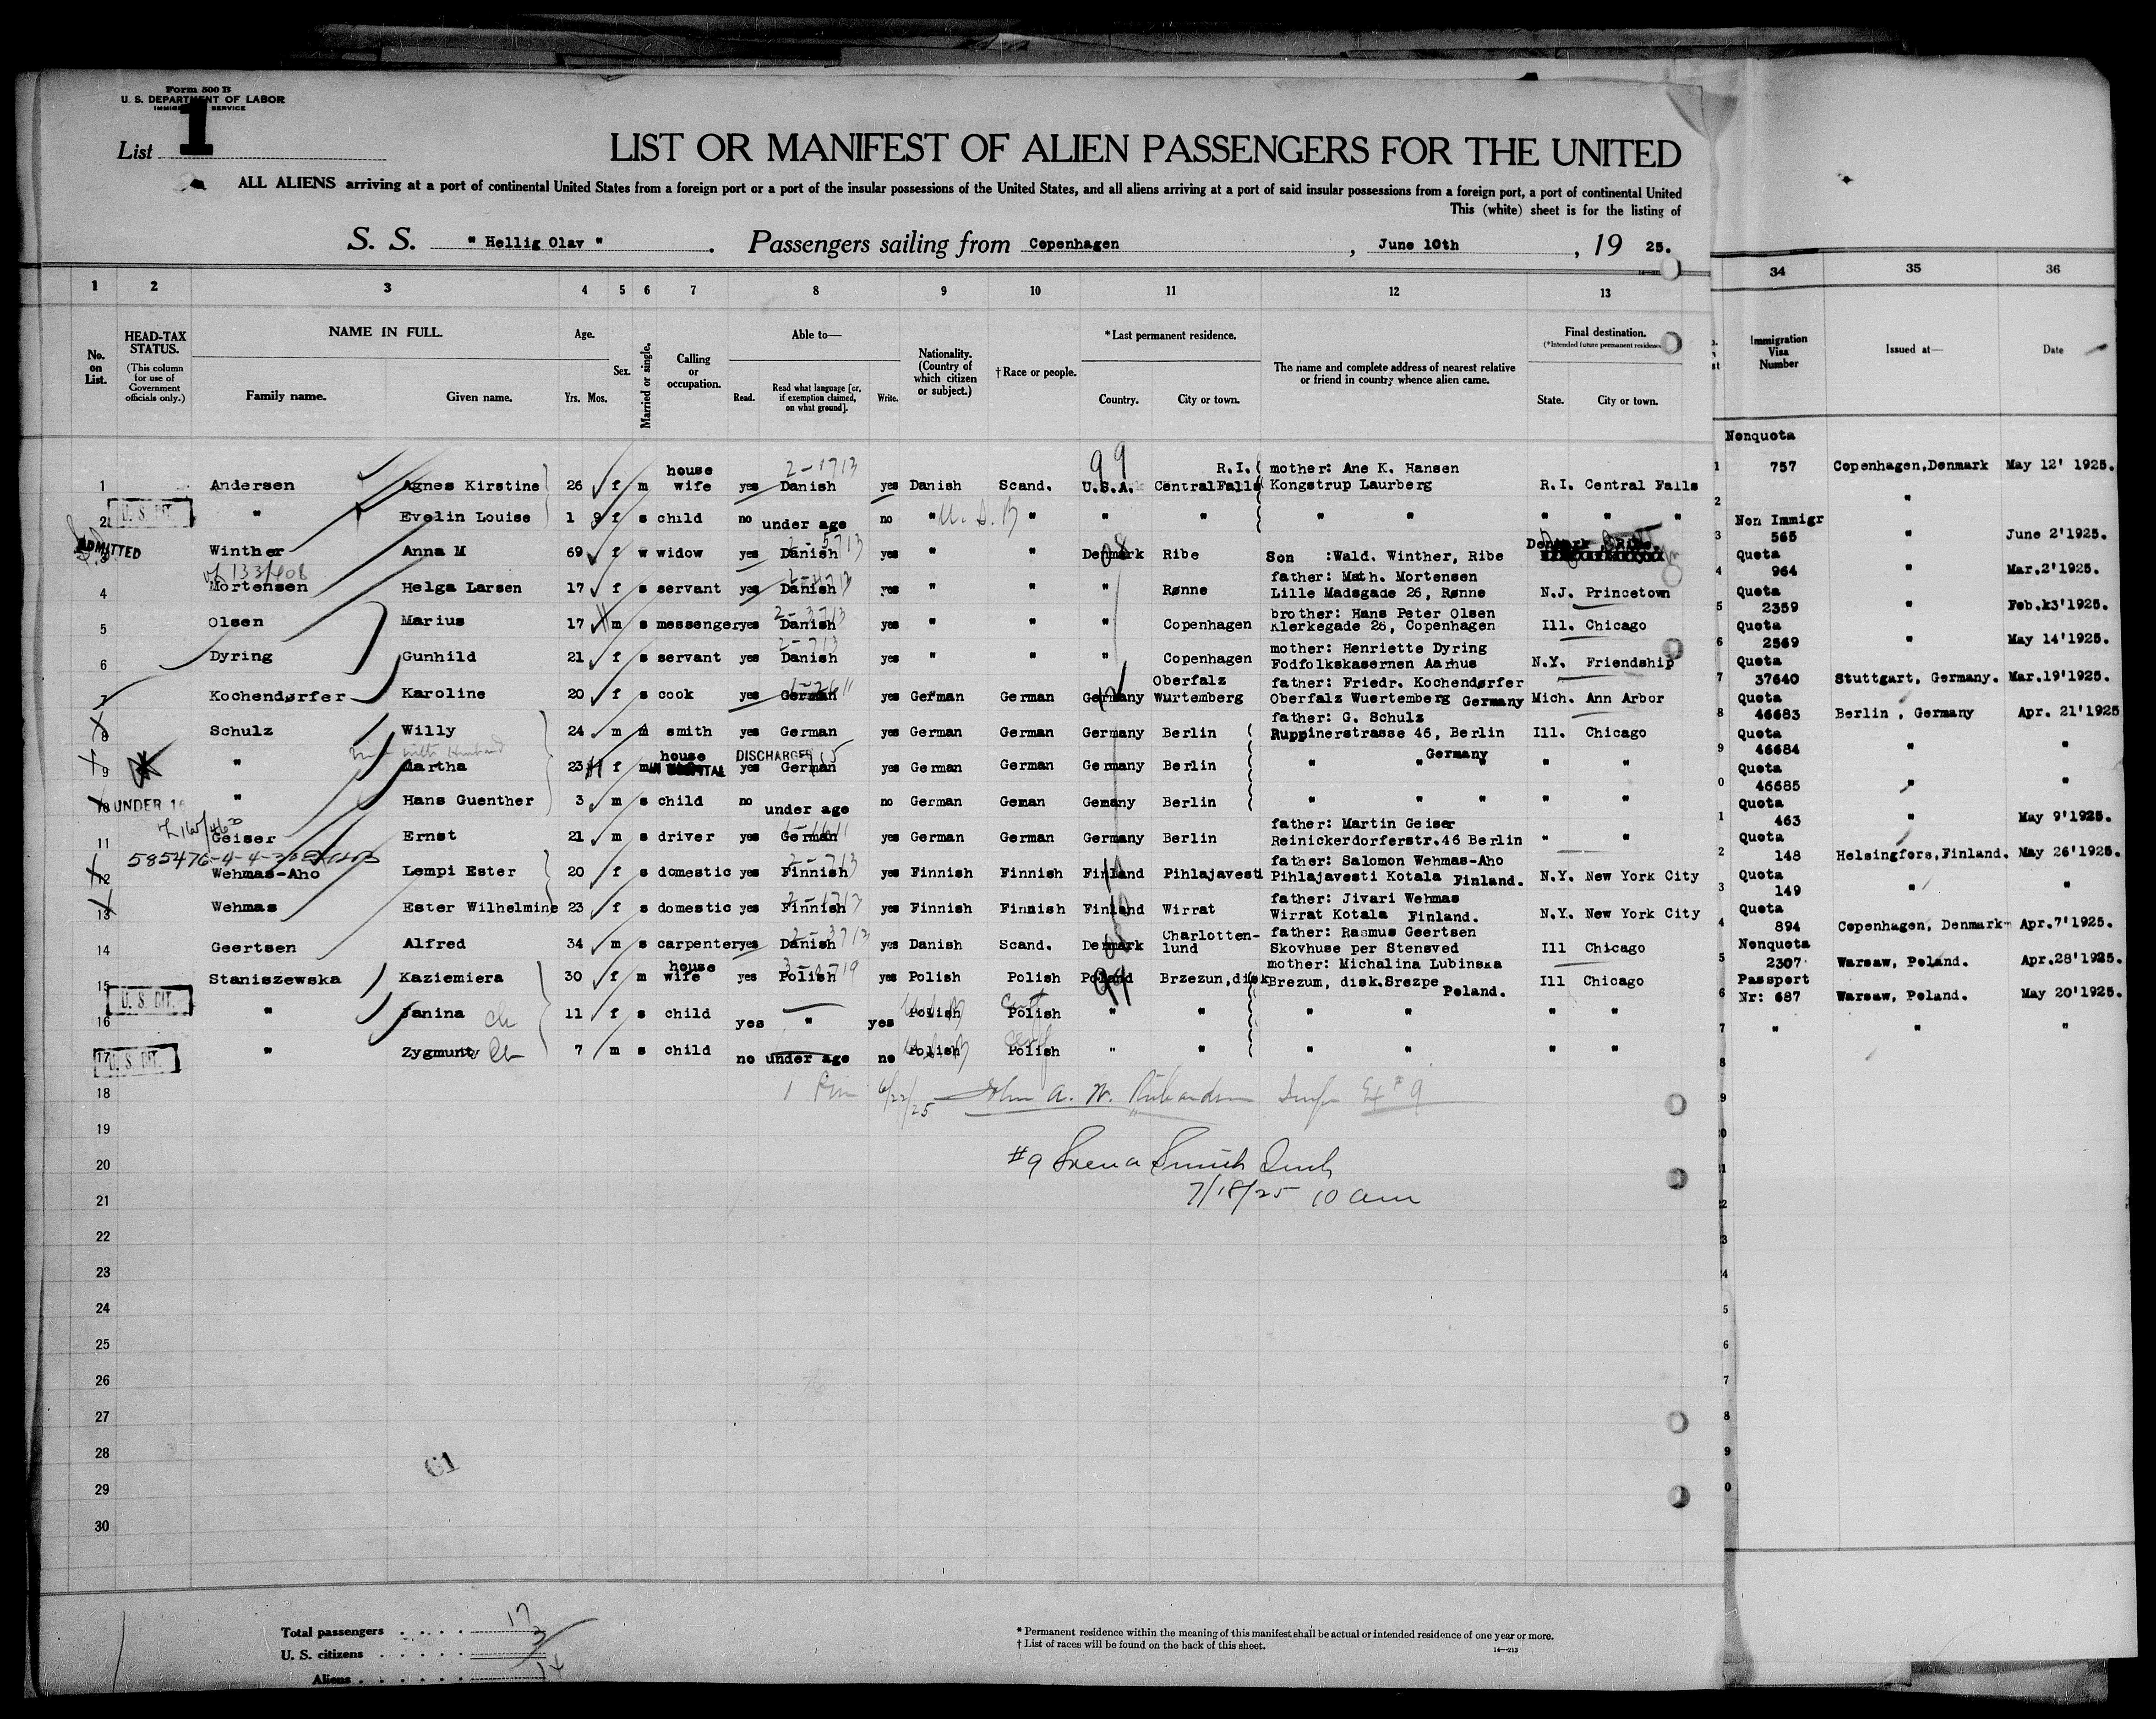 Form 500 B
U. S. DEPARTMENT OF LABOR
IMMIGRATION SERVICE
List 1
LIST OR MANIFEST OF ALIEN PASSENGERS FOR THE UNITED
ALL ALIENS arriving at a port of continental United States from a foreign port or a port of the insular possessions of the United States, and all aliens arriving at a port of said insular possessions from a foreign port, a port of continental United
This (white) sheet is for the listing of
S. S. " Hellig Olav " . Passengers sailing from Copenhagen , June 10th , 19 25.
1 2 3 4 5 6 7 8 9 10 11 12 13 34 35 36
No. on List.
HEAD-TAX STATUS.
(This column for use of Government officials only.)
NAME IN FULL.
Family name. Given name.
Age.
Yrs. Mos.
Sex.
Married or single.
Calling or occupation.
Able to—
Read. Read what language [or, if exemption claimed, on what ground]. Write.
Nationality. (Country of which citizen or subject.)
† Race or people.
* Last permanent residence.
Country. City or town.
The name and complete address of nearest relative or friend in country whence alien came.
Final destination.
(*Intended future permanent residence)
State. City or town.
Immigration Visa Number
Issued at—
Date
1 Andersen Agnes Kirstine 26 f m house wife yes Danish yes Danish Scand. U.S.A. Central Falls R.I. mother: Ane K. Hansen Kongstrup Laurberg R.I. Central Falls
2 " Evelin Louise 1 9 f s child no under age no " " " " " " " " "
3 Winther Anna M 69 f w widow yes Danish yes " " Denmark Ribe Son :Wald. Winther, Ribe Denmark Ribe.
4 Mortensen Helga Larsen 17 f s servant yes Danish yes " " " Rønne father: Math. Mortensen Lille Madsgade 26, Rønne N.J. Princetown
5 Olsen Marius 17 m s messenger yes Danish yes " " " Copenhagen brother: Hans Peter Olsen Klerkegade 26, Copenhagen Ill. Chicago
6 Dyring Gunhild 21 f s servant yes Danish yes " " " Copenhagen mother: Henriette Dyring Fodfolkskasernen Aarhus N.Y. Friendship
7 Kochendørfer Karoline 20 f s cook yes German yes German German Germany Oberfalz Wurtemberg father: Friedr. Kochendørfer Oberfalz Wuertemberg Germany Mich. Ann Arbor
8 Schulz Willy 24 m m smith yes German yes German German Germany Berlin father: G. Schulz Ruppinerstrasse 46, Berlin Germany Ill. Chicago
9 " Martha 23 f m house yes German yes German German Germany Berlin " " " " "
10 " Hans Guenther 3 m s child no under age no German Geman Gemany Berlin " " " " "
11 Geiser Ernst 21 m s driver yes German yes German German Germany Berlin father: Martin Geiser Reinickerdorferstr.46 Berlin " "
12 Wehmas-Aho Lempi Ester 20 f s domestic yes Finnish yes Finnish Finnish Finland Pihlajavesti father: Salomon Wehmas-Aho Pihlajavesti Kotala Finland. N.Y. New York City
13 Wehmas Ester Wilhelmine 23 f s domestic yes Finnish yes Finnish Finnish Finland Wirrat father: Jivari Wehmas Wirrat Kotala Finland. N.Y. New York City
14 Geertsen Alfred 34 m s carpenter yes Danish yes Danish Scand. Denmark Charlotten-lund father: Rasmus Geertsen Skovhuse per Stensved Ill Chicago
15 Staniszewska Kaziemiera 30 f m house wife yes Polish yes Polish Polish Poland Brzezun,disk mother: Michalina Lubinska Brezum, disk.Srezpe Poland. Ill Chicago
16 " Janina 11 f s child yes " yes Polish Polish " " " " " "
17 " Zygmunt 7 m s child no under age no Polish Polish " " " " " "
U. S. CIT.
ADMITTED
UNDER 16
U. S. CIT.
U. S. CIT.
DISCHARGED
IN HOSPITAL
585476
18
19
20
21
22
23
24
25
26
27
28
29
30
6/22/25 John A. W. Richardson
#9
7/18/25 10 am
61
Nonquota
1 757 Copenhagen,Denmark May 12' 1925.
2 "
Non Immigr
3 565 " June 2'1925.
Quota
4 964 " Mar.2'1925.
Quota
5 2359 " Feb.k3'1925.
Quota
6 2569 " May 14'1925.
Quota
7 37640 Stuttgart, Germany. Mar.19'1925.
Quota
8 46683 Berlin , Germany Apr. 21'1925
Quota
9 46684 " "
Quota
0 46685 " "
Quota
1 463 " May 9'1925.
Quota
2 148 Helsingfors,Finland. May 26'1925.
Quota
3 149 " "
Quota
4 894 Copenhagen, Denmark Apr.7'1925.
Nonquota
5 2307 Warsaw, Poland. Apr.28'1925.
Passport
6 Nr: 687 Warsaw, Poland. May 20'1925.
7 " " "
8
9
0
1
2
3
4
5
6
7
8
9
0
Total passengers . . . . 17
U. S. citizens . . . . . 3
Aliens . . . . . . 14
* Permanent residence within the meaning of this manifest shall be actual or intended residence of one year or more.
† List of races will be found on the back of this sheet.
14—213